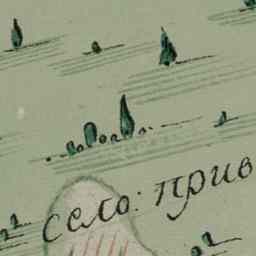 село: прив